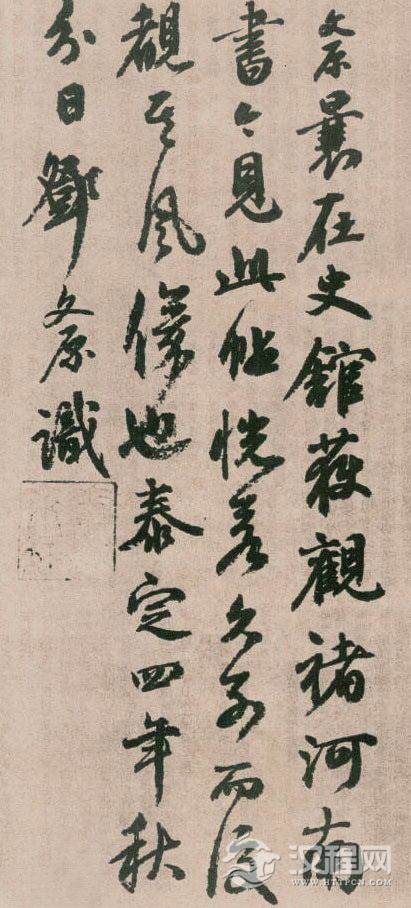 文原曩在史館獲觀褚河南
書今見此帖恍若久別而復
覩其風儀也泰定四年秋
分日鄧文原識
汉程网
WWW.HTTPCN.COM